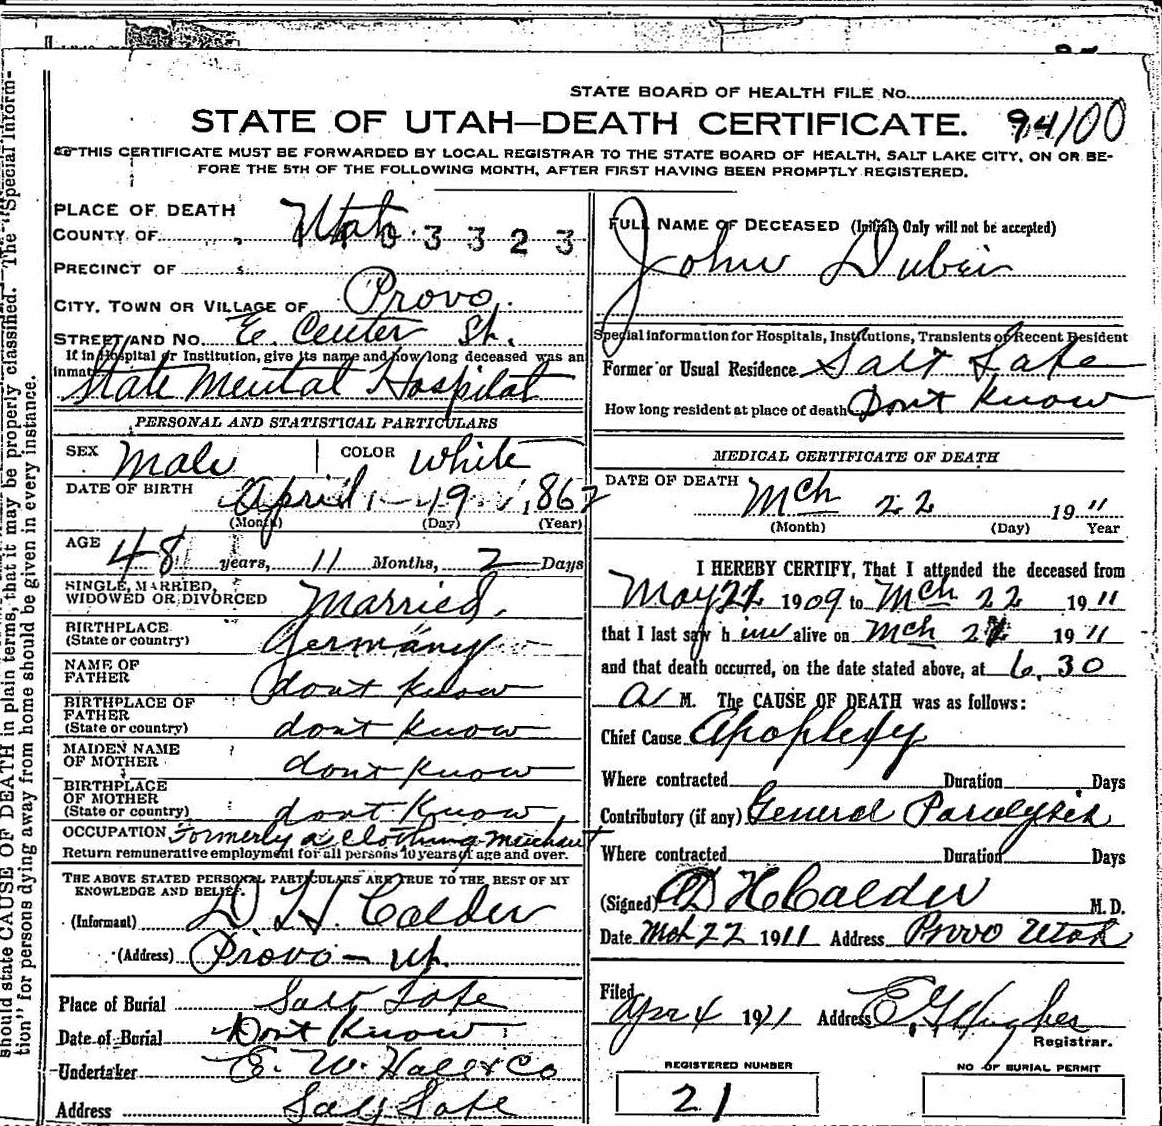 STATE BOARD OF HEALTH FILE No.
STATE OF UTAH—DEATH CERTIFICATE. 94/100
THIS CERTIFICATE MUST BE FORWARDED BY LOCAL REGISTRAR TO THE STATE BOARD OF HEALTH, SALT LAKE CITY, ON OR BE-
FORE THE 5TH OF THE FOLLOWING MONTH, AFTER FIRST HAVING BEEN PROMPTLY REGISTERED.
PLACE OF DEATH
COUNTY OF Utah 3323
PRECINCT OF
CITY, TOWN OR VILLAGE OF Provo.
STREET AND No. E. Center St.
If in Hospital or Institution, give its name and how long deceased was an
inmate State Mental Hospital
PERSONAL AND STATISTICAL PARTICULARS
SEX Male COLOR White
DATE OF BIRTH April 19 1862
(Month) (Day) (Year)
AGE 48 years, 11 Months, 2 Days
SINGLE, MARRIED,
WIDOWED OR DIVORCED Married.
BIRTHPLACE
(State or country) Germany
NAME OF
FATHER dont know
BIRTHPLACE OF
FATHER
(State or country) dont know
MAIDEN NAME
OF MOTHER dont know
BIRTHPLACE
OF MOTHER
(State or country) dont know
OCCUPATION Formerly a Clothing Merchant
Return remunerative employment for all persons 10 years of age and over.
THE ABOVE STATED PERSONAL PARTICULARS ARE TRUE TO THE BEST OF MY
KNOWLEDGE AND BELIEF.
(Informant) D H Calder
(Address) Provo - Ut.
Place of Burial Salt Lake
Date of Burial Dont Know
Undertaker E. W. Hall & Co
Address Salt Lake
FULL NAME OF DECEASED (Initials Only will not be accepted)
John Dubei
Special information for Hospitals, Institutions, Transients or Recent Resident
Former or Usual Residence Salt Lake
How long resident at place of death Dont Know
MEDICAL CERTIFICATE OF DEATH
DATE OF DEATH Mch 22 1911
(Month) (Day) Year
I HEREBY CERTIFY, That I attended the deceased from
May 1909 to Mch 22 1911
that I last saw him alive on Mch 1911
and that death occurred, on the date stated above, at 6.30
A M. The CAUSE OF DEATH was as follows:
Chief Cause Apoplexy
Where contracted Duration Days
Contributory (if any) General Paralysis
Where contracted Duration Days
(Signed) D H Calder M.D.
Date Mch 22 1911 Address Provo Utah
Filed
Apr 4 1911 Address E. G. Hughes
Registrar.
REGISTERED NUMBER
21
NO OF BURIAL PERMIT
should state CAUSE OF DEATH in plain terms, that it may be properly classified. The "Special Inform-
tion" for persons dying away from home should be given in every instance.